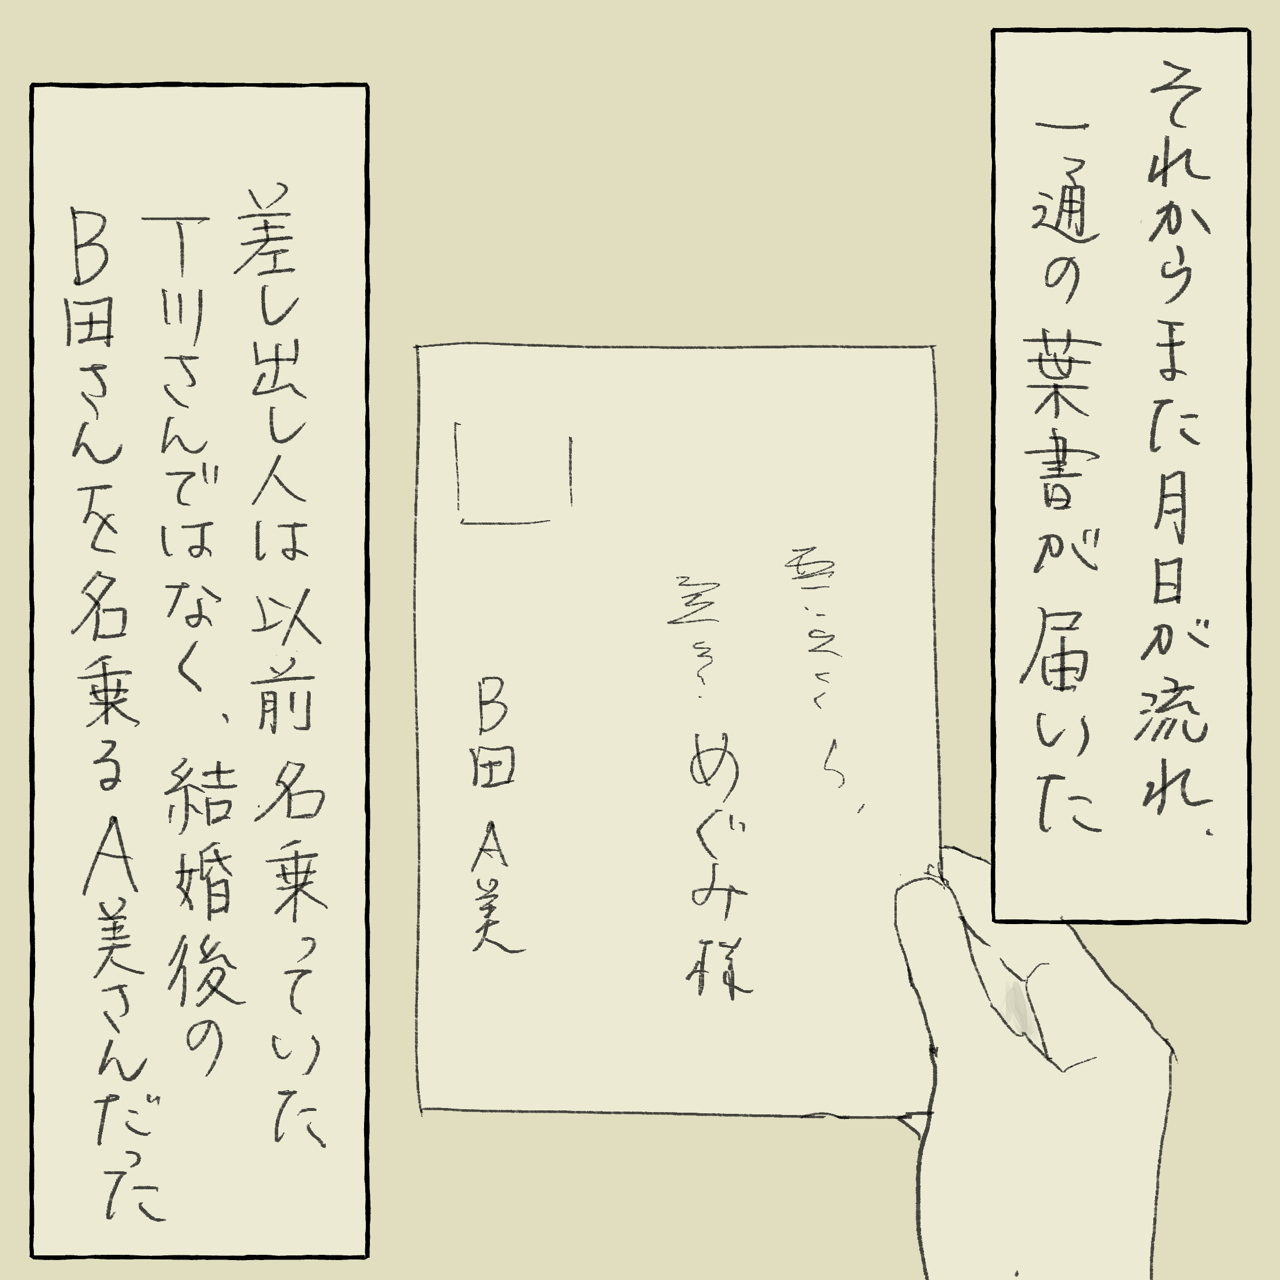 それからまた月日が流れ、
一通の葉書が届いた
めぐみ様
B田 A美
差し出し人は以前名乗っていた
T川さんではなく、結婚後の
B田さんを名乗るA美さんだった